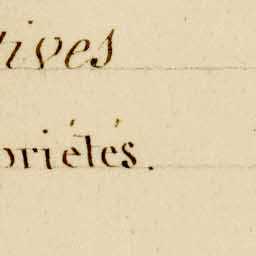 tives
priétés.